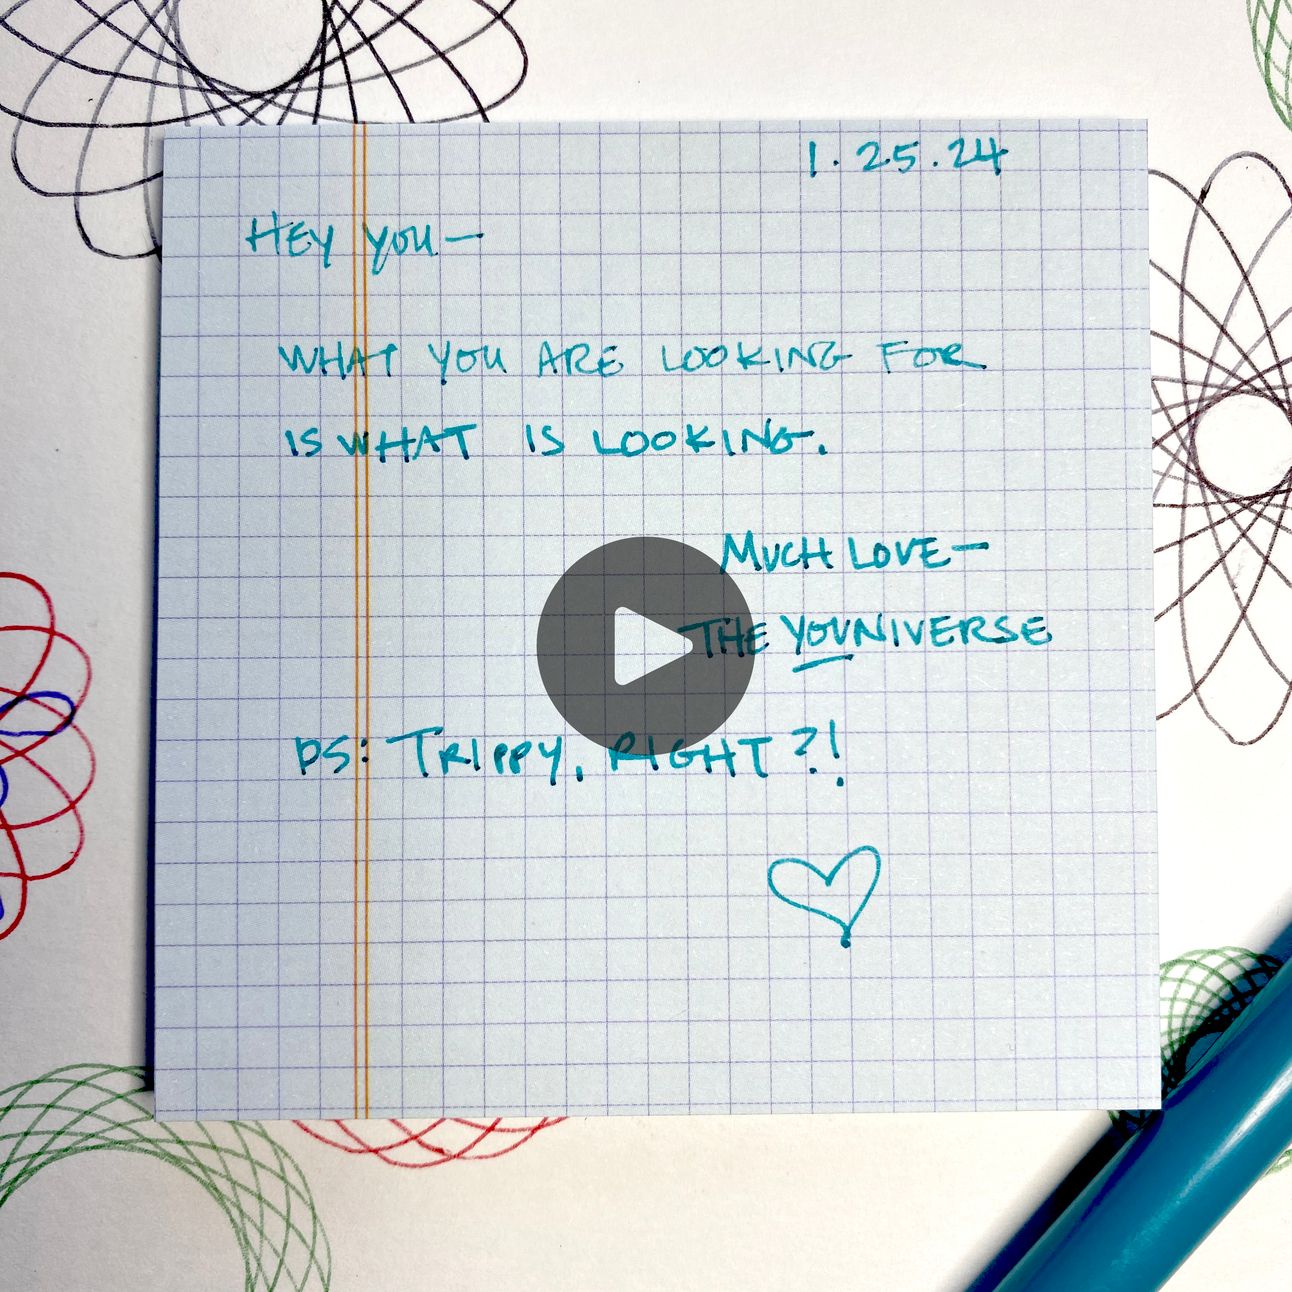 1.25.24
HEY YOU—
WHAT YOU ARE LOOKING FOR
IS WHAT IS LOOKING.
MUCH LOVE—
THE YOUNIVERSE
PS: TRIPPY, RIGHT?!